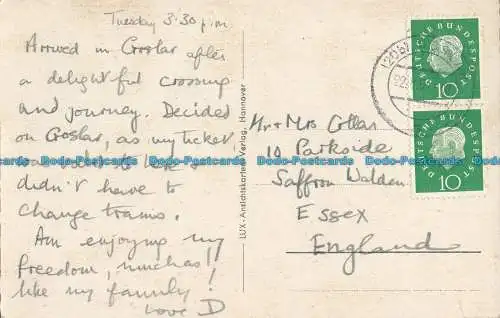 Tuesday 3.30 p.m
Arrived in Goslar after
a delightful crossing
and journey. Decided
on Goslar, as my ticket
didn't have to
change trains.
Am enjoying my
freedom, muchas!
like my family!
Love D
LUX-Ansichtskarten-Verlag, Hannover
Mr & Mrs Collar
10 Parkside
Saffron Walden
Essex
England
DEUTSCHE BUNDESPOST
10
DEUTSCHE BUNDESPOST
10
Dodo-Postcards Dodo-Postcards Dodo-Postcards Dodo-Postcards Dodo-Postcards